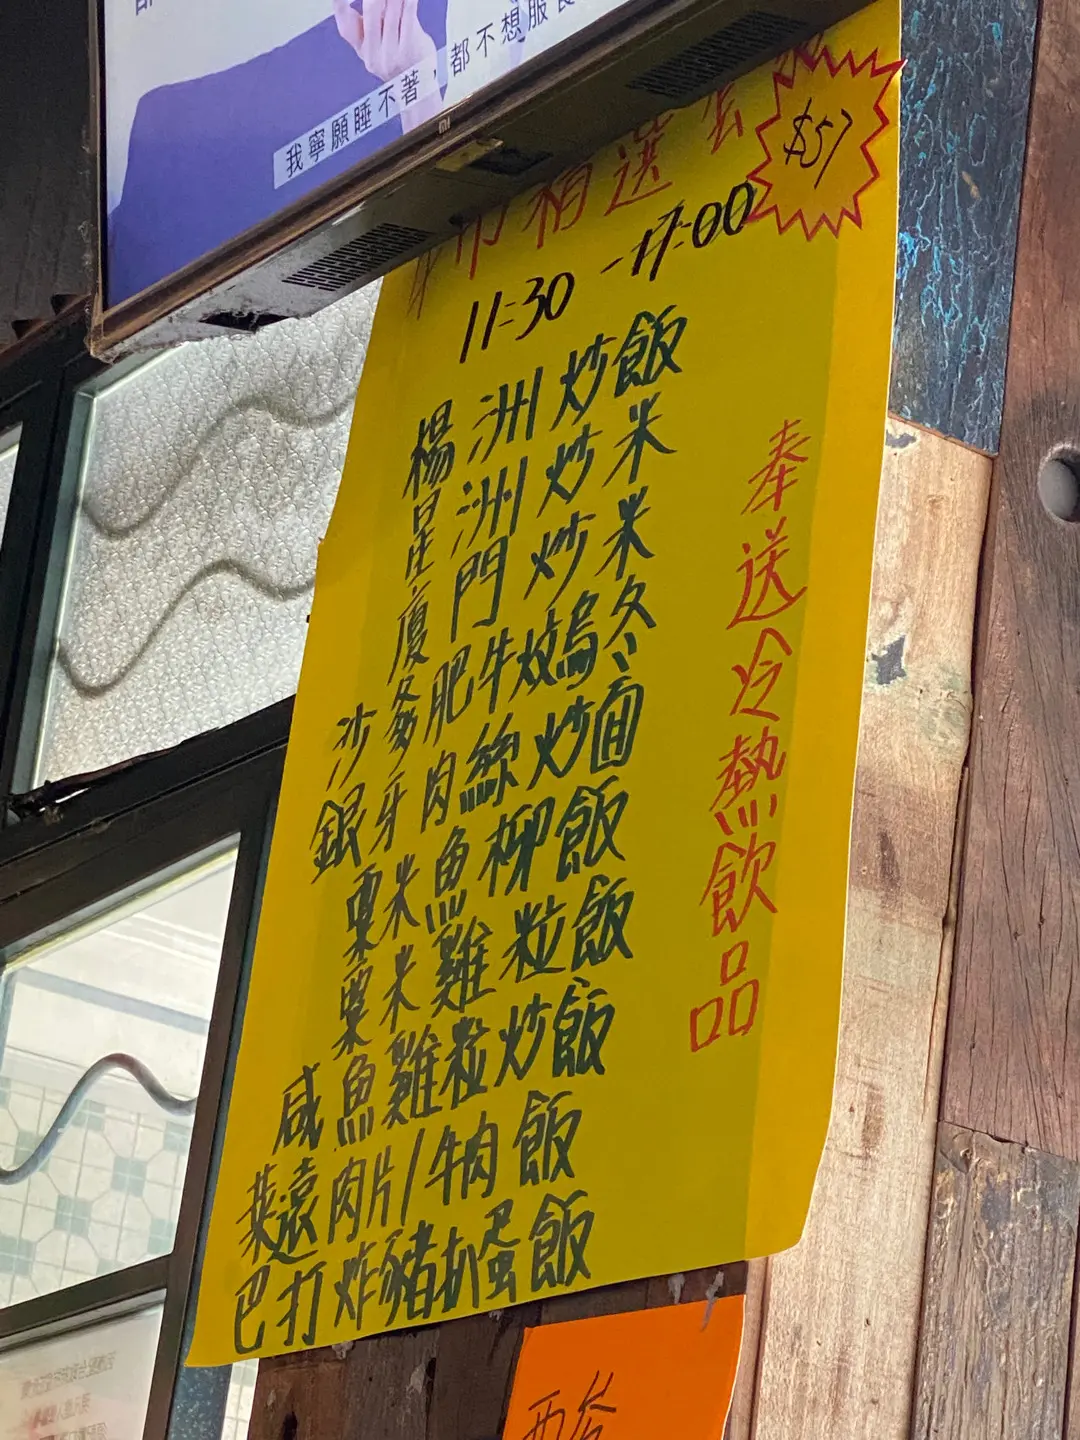 我寧願睡不著，都不想服食
mi
市精選
$57
11:30-17:00
楊洲炒飯
星洲炒米
廈門炒米
沙爹肥牛炆烏冬
銀牙肉絲炒面
粟米魚柳飯
粟米雞粒飯
咸魚雞粒炒飯
菜遠肉片/牛肉飯
巴打炸豬扒蛋飯
奉送冷熱飲品
西餐